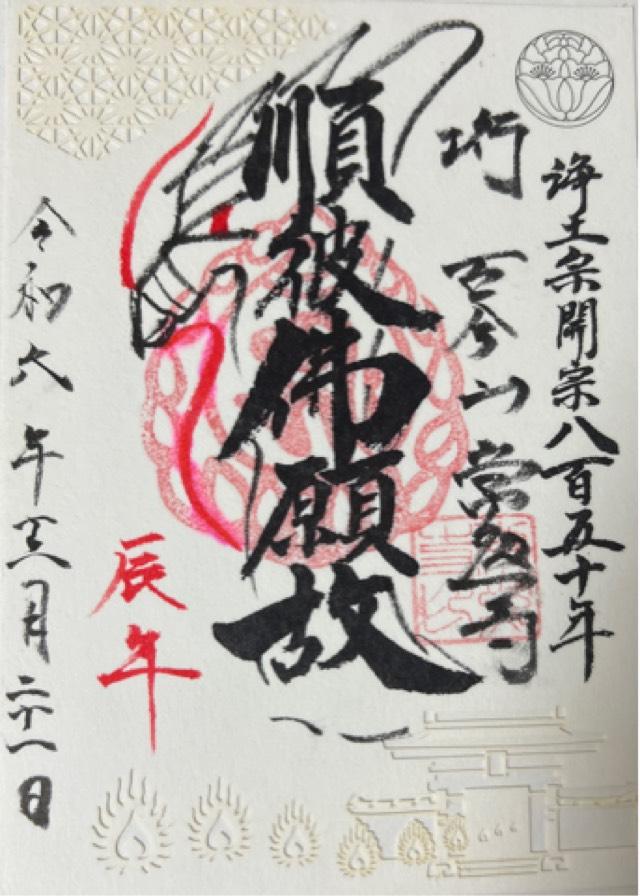 浄土宗開宗八百五十年
古今山 常 寺
順彼佛願故
辰年
令和六年三月二十一日